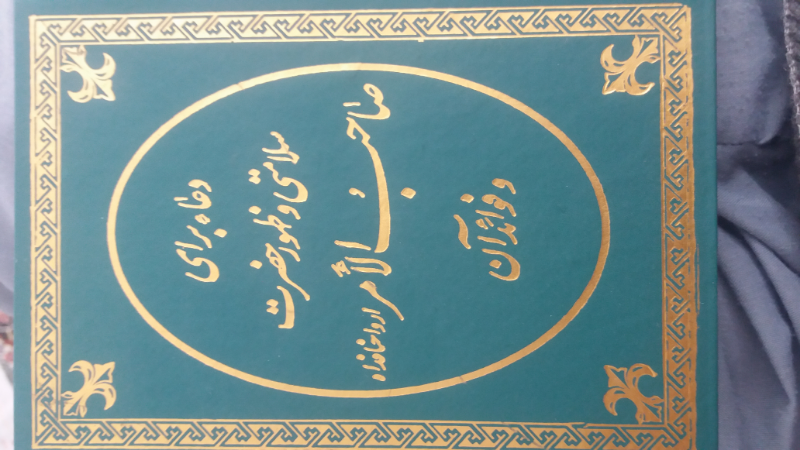 دعاء برای
سلامتی و ظهور حضرت
صاحبُ الأمر ارواحنا فداه
و فوائد آن